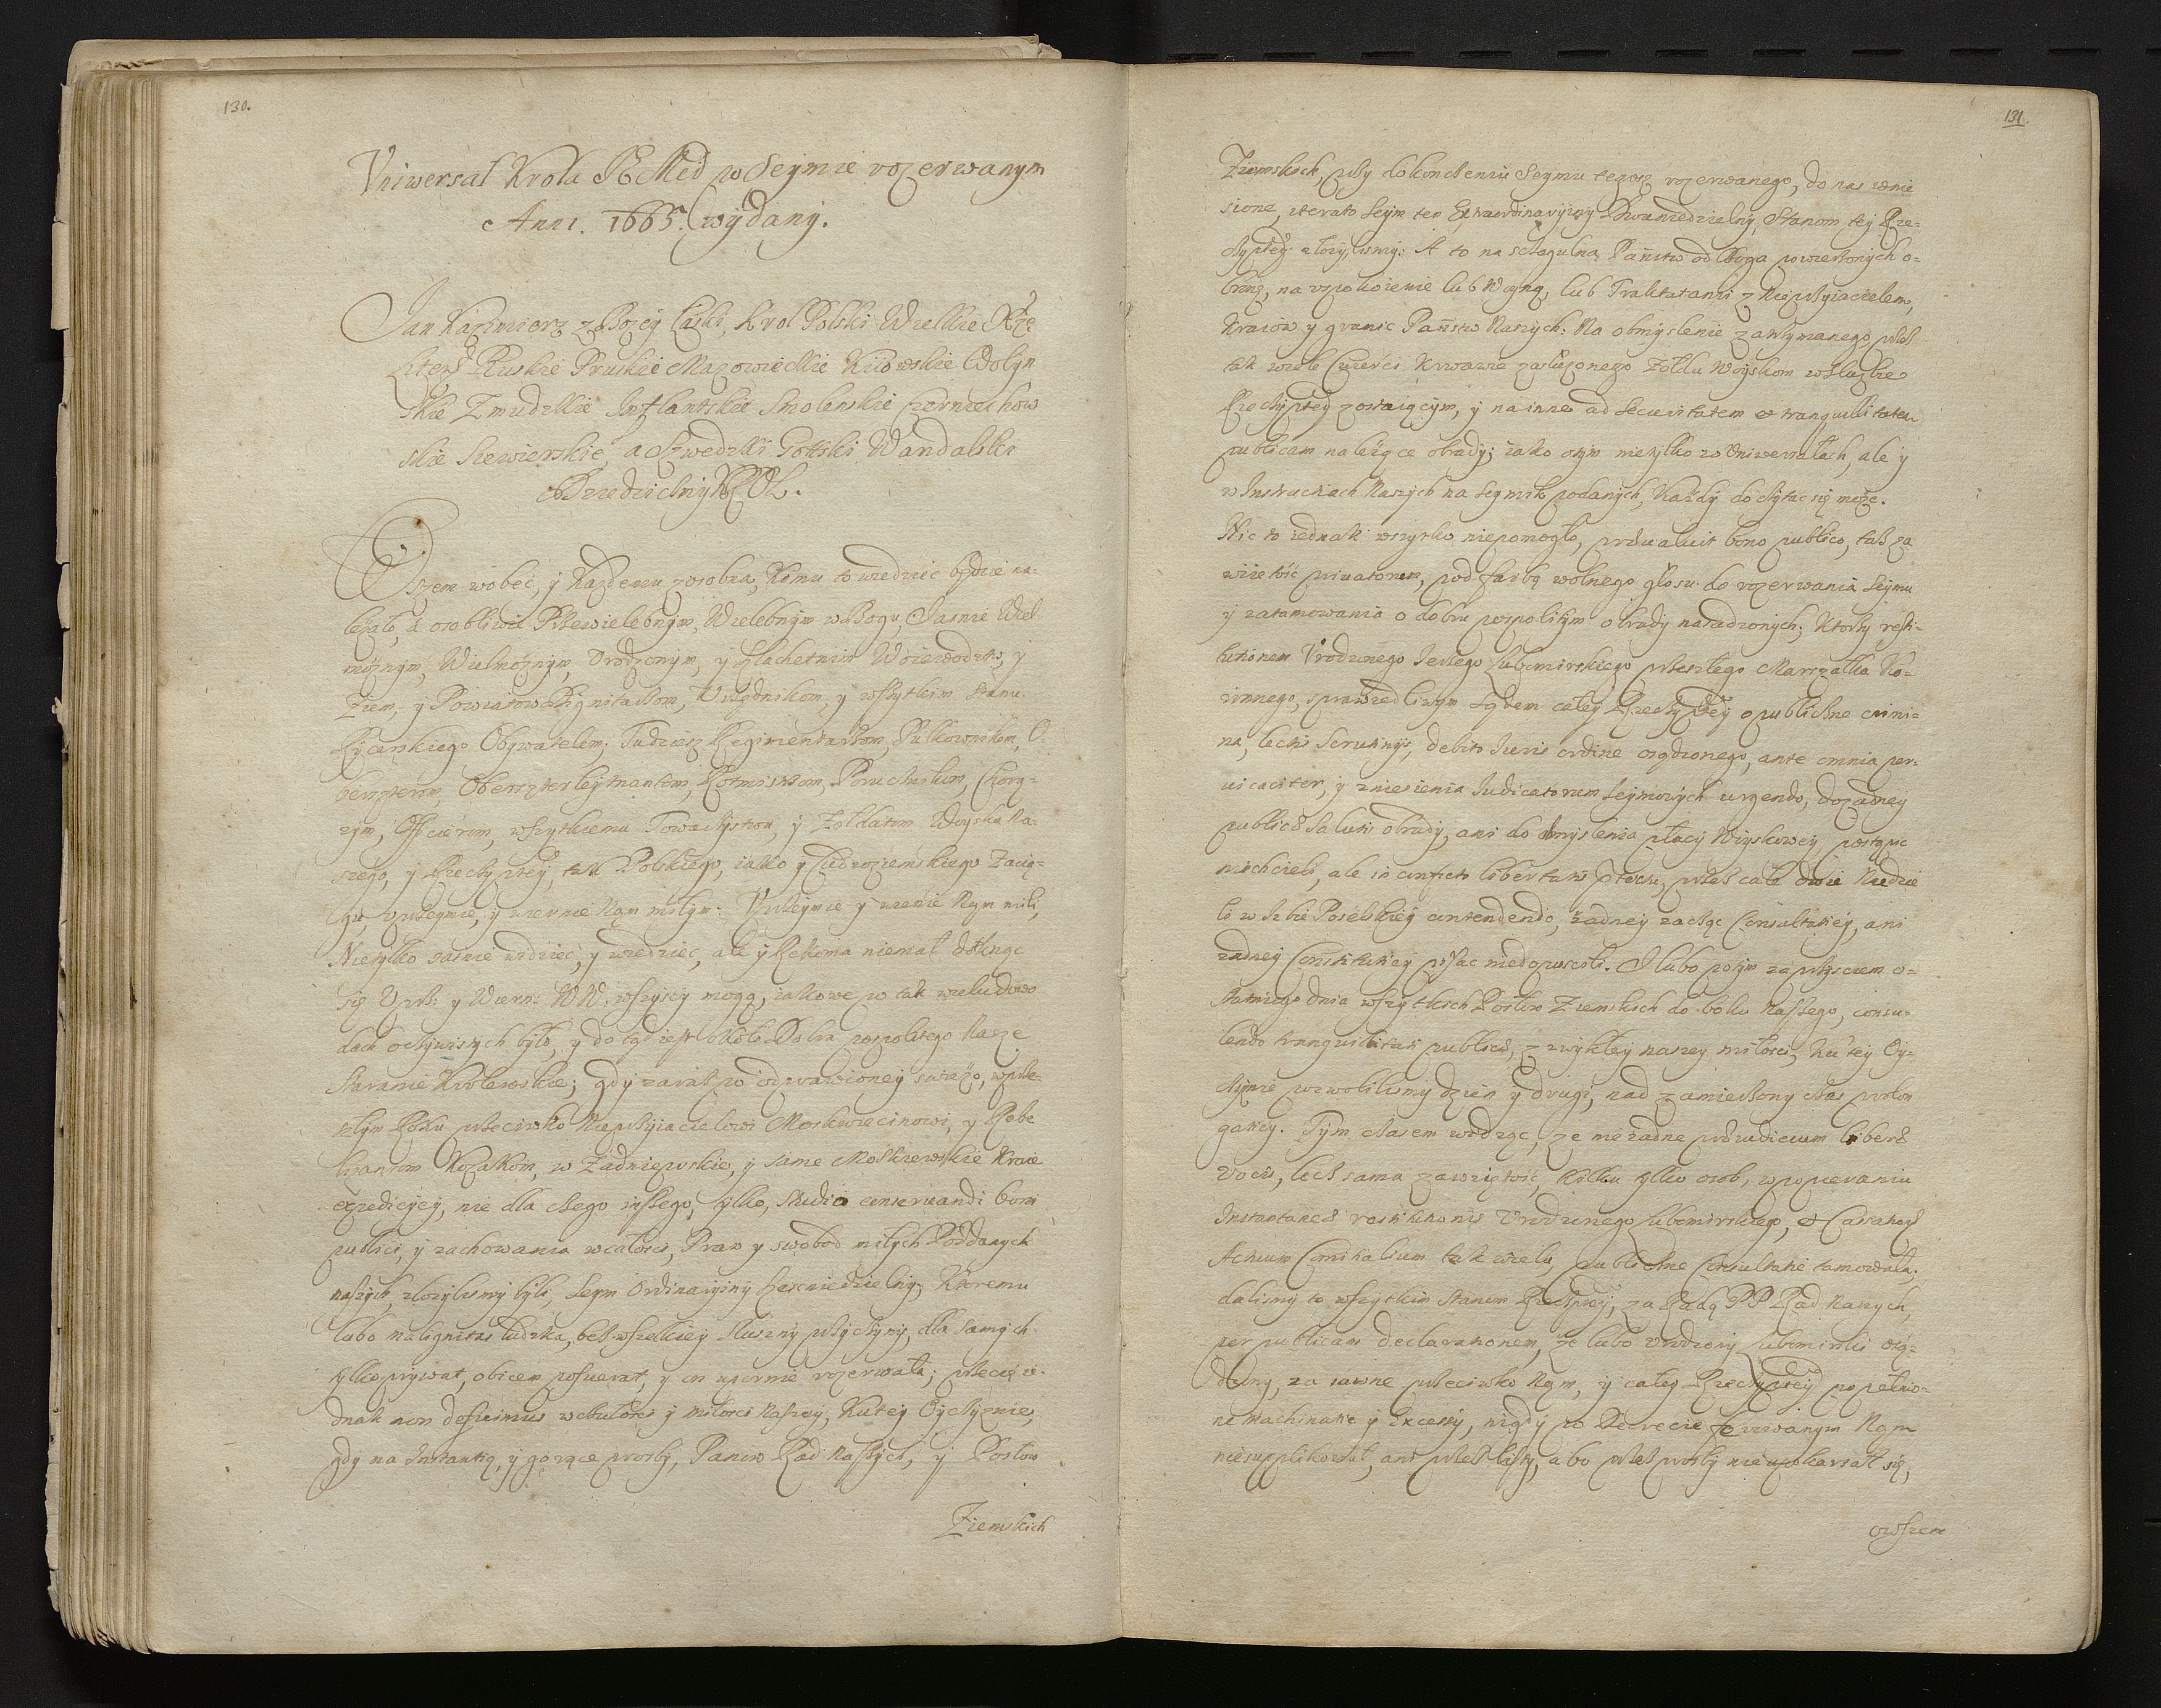 130.
Vniwersał Krola JEMści po Seymie rozerwanym
Anni. 1665. wydany.
Jan Kazimierz z Bozey Łaski, Krol Polski Wielkie Xże
Litews. Ruskie Pruskie Mazowieckie Kiiowskie Wołyn
skie Zmudzkie Inflantskie Smolenskie Czerniechow
skie Siewierskie, a Szwedzki Gottski Wandalski
Dziedziczny KROL.
Wszem wobec, y Kazdemu zosobna, Komu to wiedziec będzie na-
lezało, a osobliwie Przewielebnym, Wielebnym w Bogu, Jasnie Wiel
moznym, Wielmoznym, Urodzonym, y Szlachetnim Woiewodztw, y
Ziem, y Powiatow Dignitarzom, Vrzędnikom, y wszytkim Stanu
Rycerskiego Obywatelom; Tudziesz Regimentarzom, Pułkownikom, O-
bersterom, Oberszterleytnantom, Rotmistrzom, Porucznikom, Chorą-
zym, Officierom, wszytkiemu Towarzystwu, y Zołdatom Woyska Na-
szego, y Rzeczyptey, tak Polskiego, iako y Cudzoziemskiego Zacią-
gu, vprzeymie, y wiernie Nąm miłym. Vprzeymie y wiernie Nąm mili,
Nietylko iasnie widzieć, y wiedziec, ale y Rękoma niemal dotknąc
się Vprz: y Wiern: WW. wszyscy mogą, iakowe w tak wielu dowo
dach oczywistych było, y do tąd iest około Dobra pospolitego Nasze
Staranie Krolewskie; gdy zaraz po odprawioney swiezo, w prze-
szłym Roku przeciwko Nieprzyiacielowi Moskwicinowi, y Rebe
lizantom Kozakom, w Zadnieprskie, y same Moskiewskie Kraie
expedicyey, nie dla czego inszego, tylko, studio conservandi boni
publici, y zachowania wcałosci, Praw y swobod miłych Poddanych
naszych, złozylismy byli, Seym Ordinaryiny szescniedzielny, Ktoremu
lubo malignitas ludzka, bez wszelkiey słuszny przyczyny, dla samych
tylko prywat, obicem posuerat, y on upornie rozerwała; przecię ie-
dnak non defuimus w czułosci y miłosci Naszey, Ku tey Oyczyznie,
gdy na Instantią, y gorące prosby, Panow Rad Naszych, y Posłow
Ziemskich
131.
Ziemskich, przy dokonczeniu Seymu tegosz rozerwanego, do nas wnie
sione, iterato Seym ten Extraordinaryiny Dwaniedzielny, Stanom tey Rze-
czyptey złozylismy: A to na sczegulną Państw od Boga powierzonych o-
bronę, na vspokoienie lub Woyną, lub Traktatami z Nieprzyiacielem,
Kraiow y granic Państw Naszych: Na obmyslenie zatrzymanego przez
tak wiele Cwierci krwawie zasłuzonego Zołdu Woyskom w Sluzbie
Rzeczyptey zostaiącym, y na inne ad securitatem et tranquillitatem
publicam nalezące obrady; iako otym nietylko w Vniwersałach, ale y
w Instructiach Naszych na Seymiki podanych, Kazdy doczytac się moze.
Nic to iednak wszytko niepomogło, prævaluit bono publico, tak za
wziętość privatorum, pod farbą wolnego głosu do rozerwania Seymu
y zatamowania o dobru pospolitym obrady nasadzonych; Ktorzy resti-
tutionem Vrodzonego Jerzego Lubomirskiego przeszłego Marszałka Ko-
ronnego, sprawiedliwym sądem całey Rzeczyptey o publiczne crimi-
na, lectis Scrutinijs, debito Iuris ordine osądzonego, ante omnia per-
vicaciter, y zniesienia Iudicatorum Seymowych urgendo, dozadney
publicæ salutis obrady, ani do obmyslenia płacy Woyskowey, postąpic
niechcieli, ale in conficto libertatis prætextu, przez całe dwie Niedzie
li w Izbie Poselskiey contendendo, żadney zacząc Consultatiey, ani
zadney Constitutiey pisac niedopuscili. I lubo potym za przysciem o-
statniego dnia wszytkich Posłow Ziemskich do boku Naszego, consu-
lendo tranquilitati publicæ, z zwykłey naszey miłosci, Ku tey Oy-
czyznie pozwolilismy dzien y drugi, nad zamierzony czas prolon
gatiey. Tym czasem widząc, ze nie żadne præiudicium liberæ
vocis, lecz sama zawziętość, kilku tylko osob, w popieraniu
Instantaneæ restitutionis Vrodzonego Lubomirskiego, et Cassationis
Actuum Comitialium tak wielu, publiczne Consultatie tamowała;
dalismy to wszytkim Stanom Rzeczptey, za Radą PP Rad Naszych,
per publicam declarationem, że lubo Vrodzony Lubomirski osą-
dzony, za iawne przeciwko Nąm, y całey Rzeczyptey popełnio-
ne Machinatie y Excessy, nigdy po Decrecie ferowanym Nąm
niesupplikował, ani przez listy, abo przez prosby nieupokarzał się,
owszem